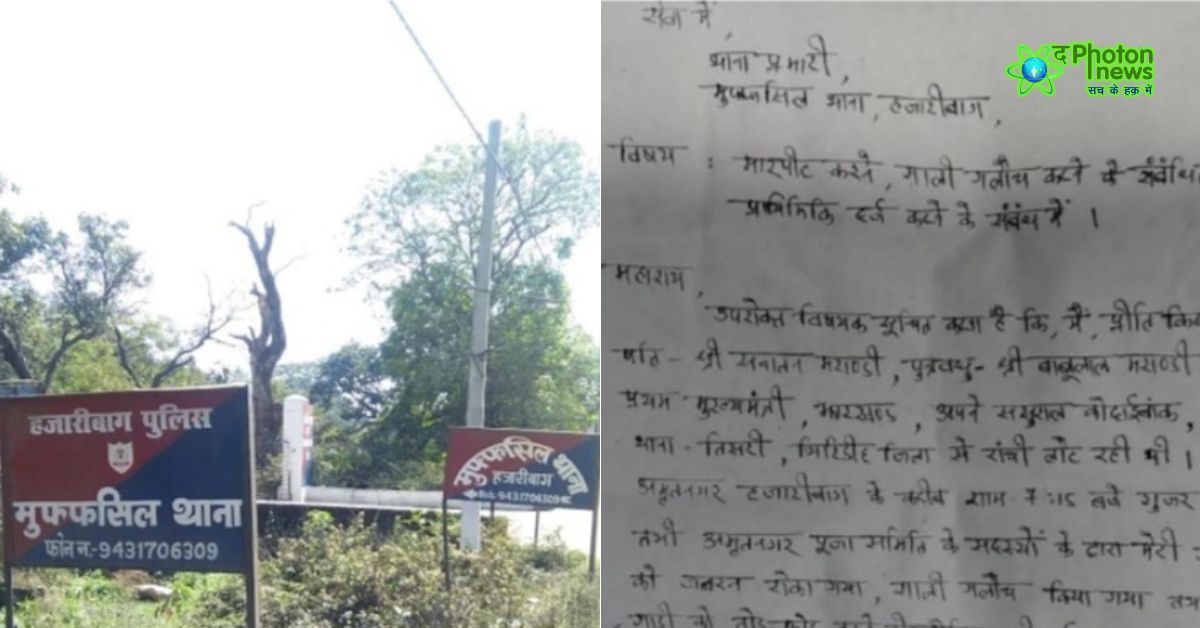 हजारीबाग पुलिस
मुफ्फसिल थाना
फोन न.-9431706309
मुफ्फसिल थाना
हजारीबाग
Mob.-9431706309
द Photon
news
सच के हक़ में
सेवा में,
थाना प्रभारी,
मुफ्फसिल थाना, हजारीबाग,
विषय : मारपीट करने, गाली गलौच करने के संबंधित
प्राथमिकि दर्ज करने के संबंध में ।
महाशय,
उपरोक्त विषयक सूचित करना है कि, मैं, प्रीति
पति - श्री सनातन मराण्डी, पुत्रवधु - श्री बाबूलाल मराण्डी
प्रथम मुख्यमंत्री, झारखण्ड, अपने ससुराल कोदाईबांक,
थाना - तिसरी, गिरिडीह जिला से रांची लौट रही थी ।
अमृतनगर हजारीबाग के करीब शाम 7:15 बजे गुजर
तभी अमृतनगर पूजा समिति के सदस्यों के द्वारा मेरी
को जबरन रोका गया, गाली गलौच किया गया तथा
गाड़ी को तोड़